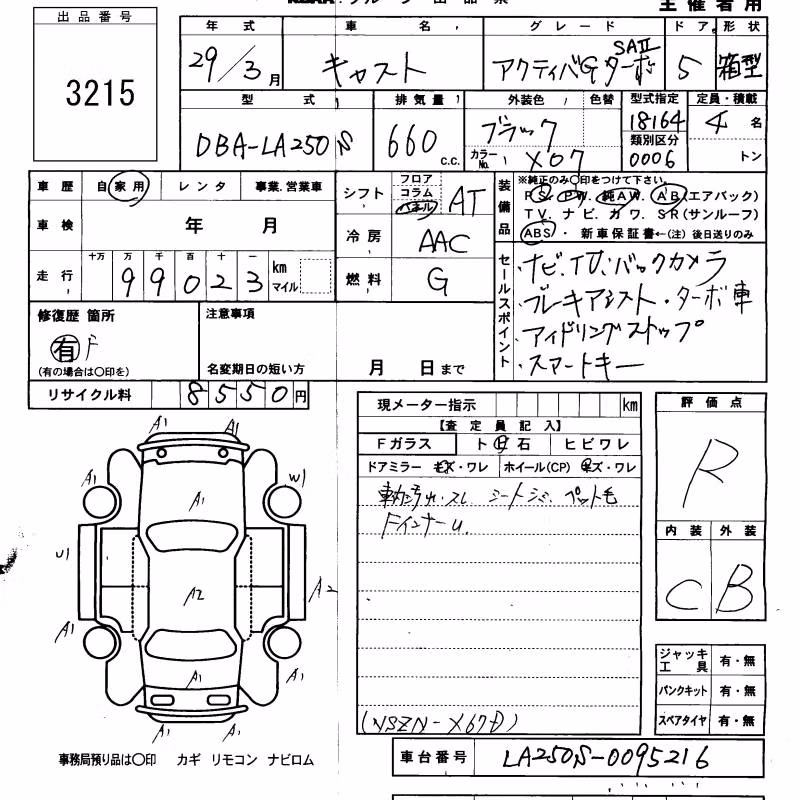 主催者用
出品番号
3215
年式 車名 グレード ドア 形状
29/3月 キャスト アクティバGターボ SAⅡ 5 箱型
型式 排気量 外装色 色替 型式指定 定員・積載
DBA-LA250S 660 c.c. ブラック 18164 4名
カラーNo. X07 類別区分 0006 トン
車歴 自家用 レンタ 事業.営業車
車検 年 月
走行 十万 万 千 百 十 一 km マイル
99023
シフト フロア コラム パネル AT
冷房 AAC
燃料 G
装備品
※純正のみ〇印をつけて下さい。
PS. PW. 純AW. AB(エアバッグ)
TV. ナビ. カワ. SR(サンルーフ)
ABS・新車保証書←(注)後日送りのみ
セールスポイント
・ナビ.TV.バックカメラ
・ブレーキアシスト・ターボ車
・アイドリングストップ
・スマートキー
修復歴 箇所
有 F
(有の場合は〇印を)
注意事項
名変期日の短い方 月 日まで
リサイクル料 8550円
現メーター指示 km
【査定員記入】
Fガラス ト日石 ヒビワレ
ドアミラー キズ・ワレ ホイール(CP) キズ・ワレ
シートシミ. ペット毛
FインナーU.
(NSZN-X67D)
評価点
R
内装 外装
C B
ジャッキ工具 有・無
パンクキット 有・無
スペアタイヤ 有・無
A1 A1
A1 A1 W1
U1 A2 A2
A1 A1 A1
A1 A1
事務局預り品は〇印 カギ リモコン ナビロム
車台番号 LA250S-0095216